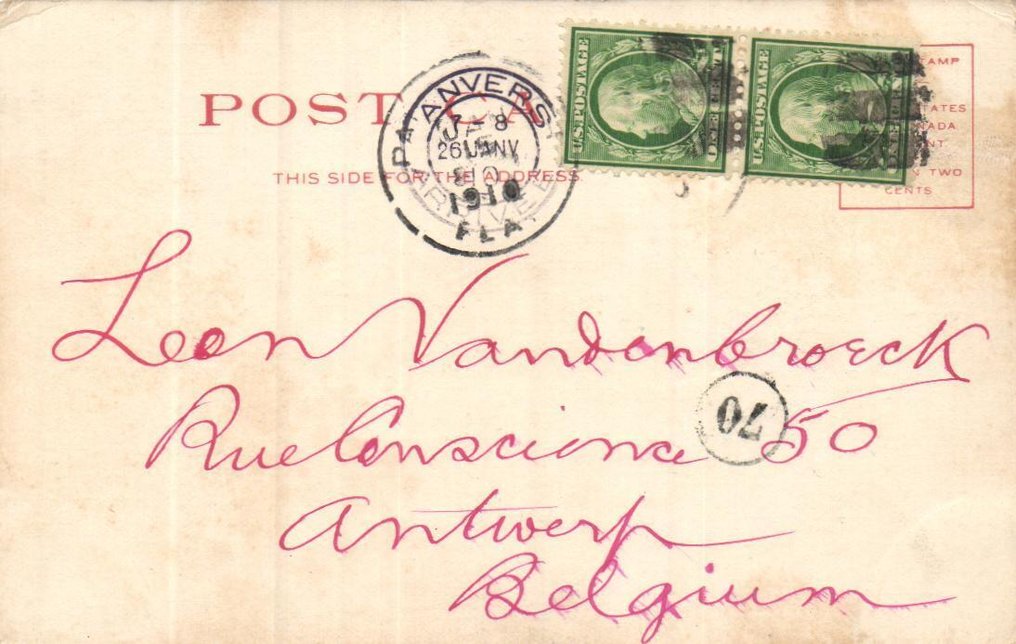 POST CA
THIS SIDE FOR THE ADDRESS.
ANVERS
7-8
26 JANV
1910
FLA.
U.S. POSTAGE
ONE CENT
U.S. POSTAGE
ONE CENT
TWO
CENTS
Leon Vandenbroeck
Rue Consciena 50
70
Antwerp
Belgium